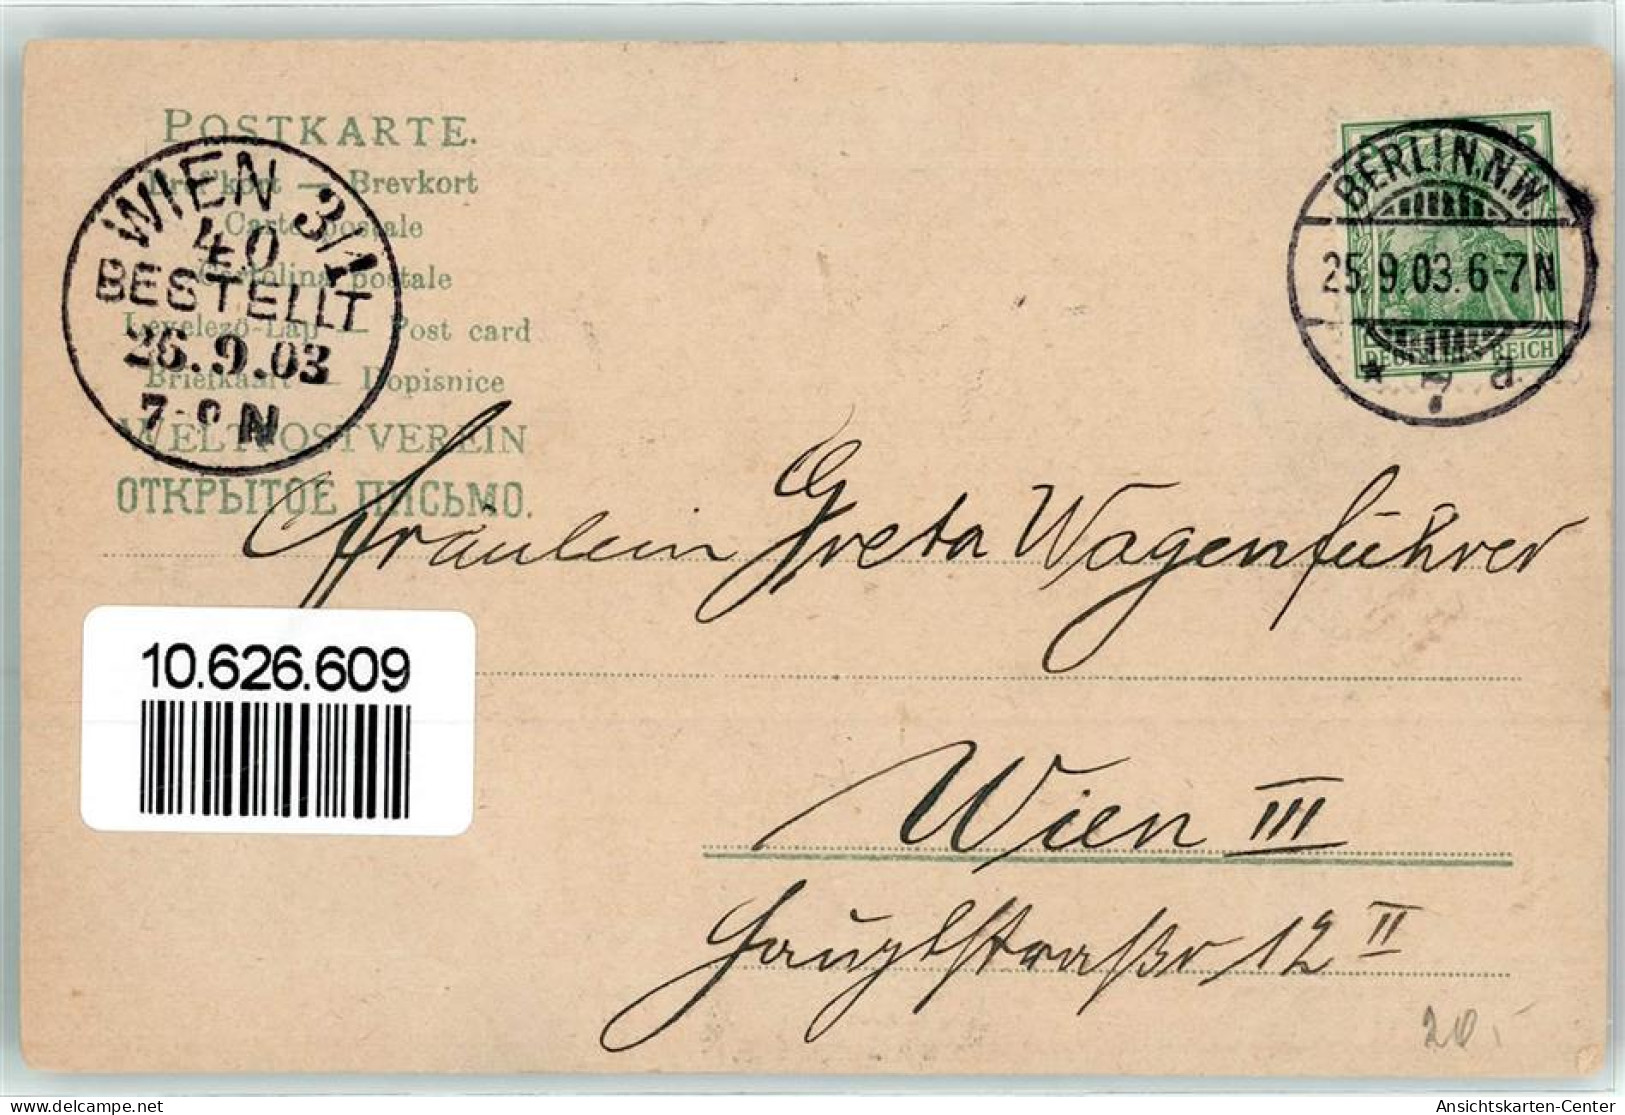 POSTKARTE.
Brefkort — Brevkort
Carte postale
Cartolina postale
Levelező-Lap — Post card
Briefkaart — Dopisnice
WELTPOSTVEREIN
ОТКРЫТОЕ ПИСЬМО.
WIEN 3/1
40
BESTELLT
26.9.03
N
5
BERLIN.N.W.
25.9.03.6-7N
* 7 d.
DEUTSCHES REICH
Fräulein Greta Wagenführer
10.626.609
Wien III
Hauptstraße 12 II
20.-
delcampe.net
Ansichtskarten-Center